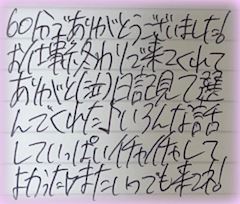 60分ありがとうございました!
お仕事終わりで来てくれて
ありがと(泣)日記見て選
んでくれた♪いろんな話
していっぱいイチャイチャして
よかった♡またいつでも来てね!